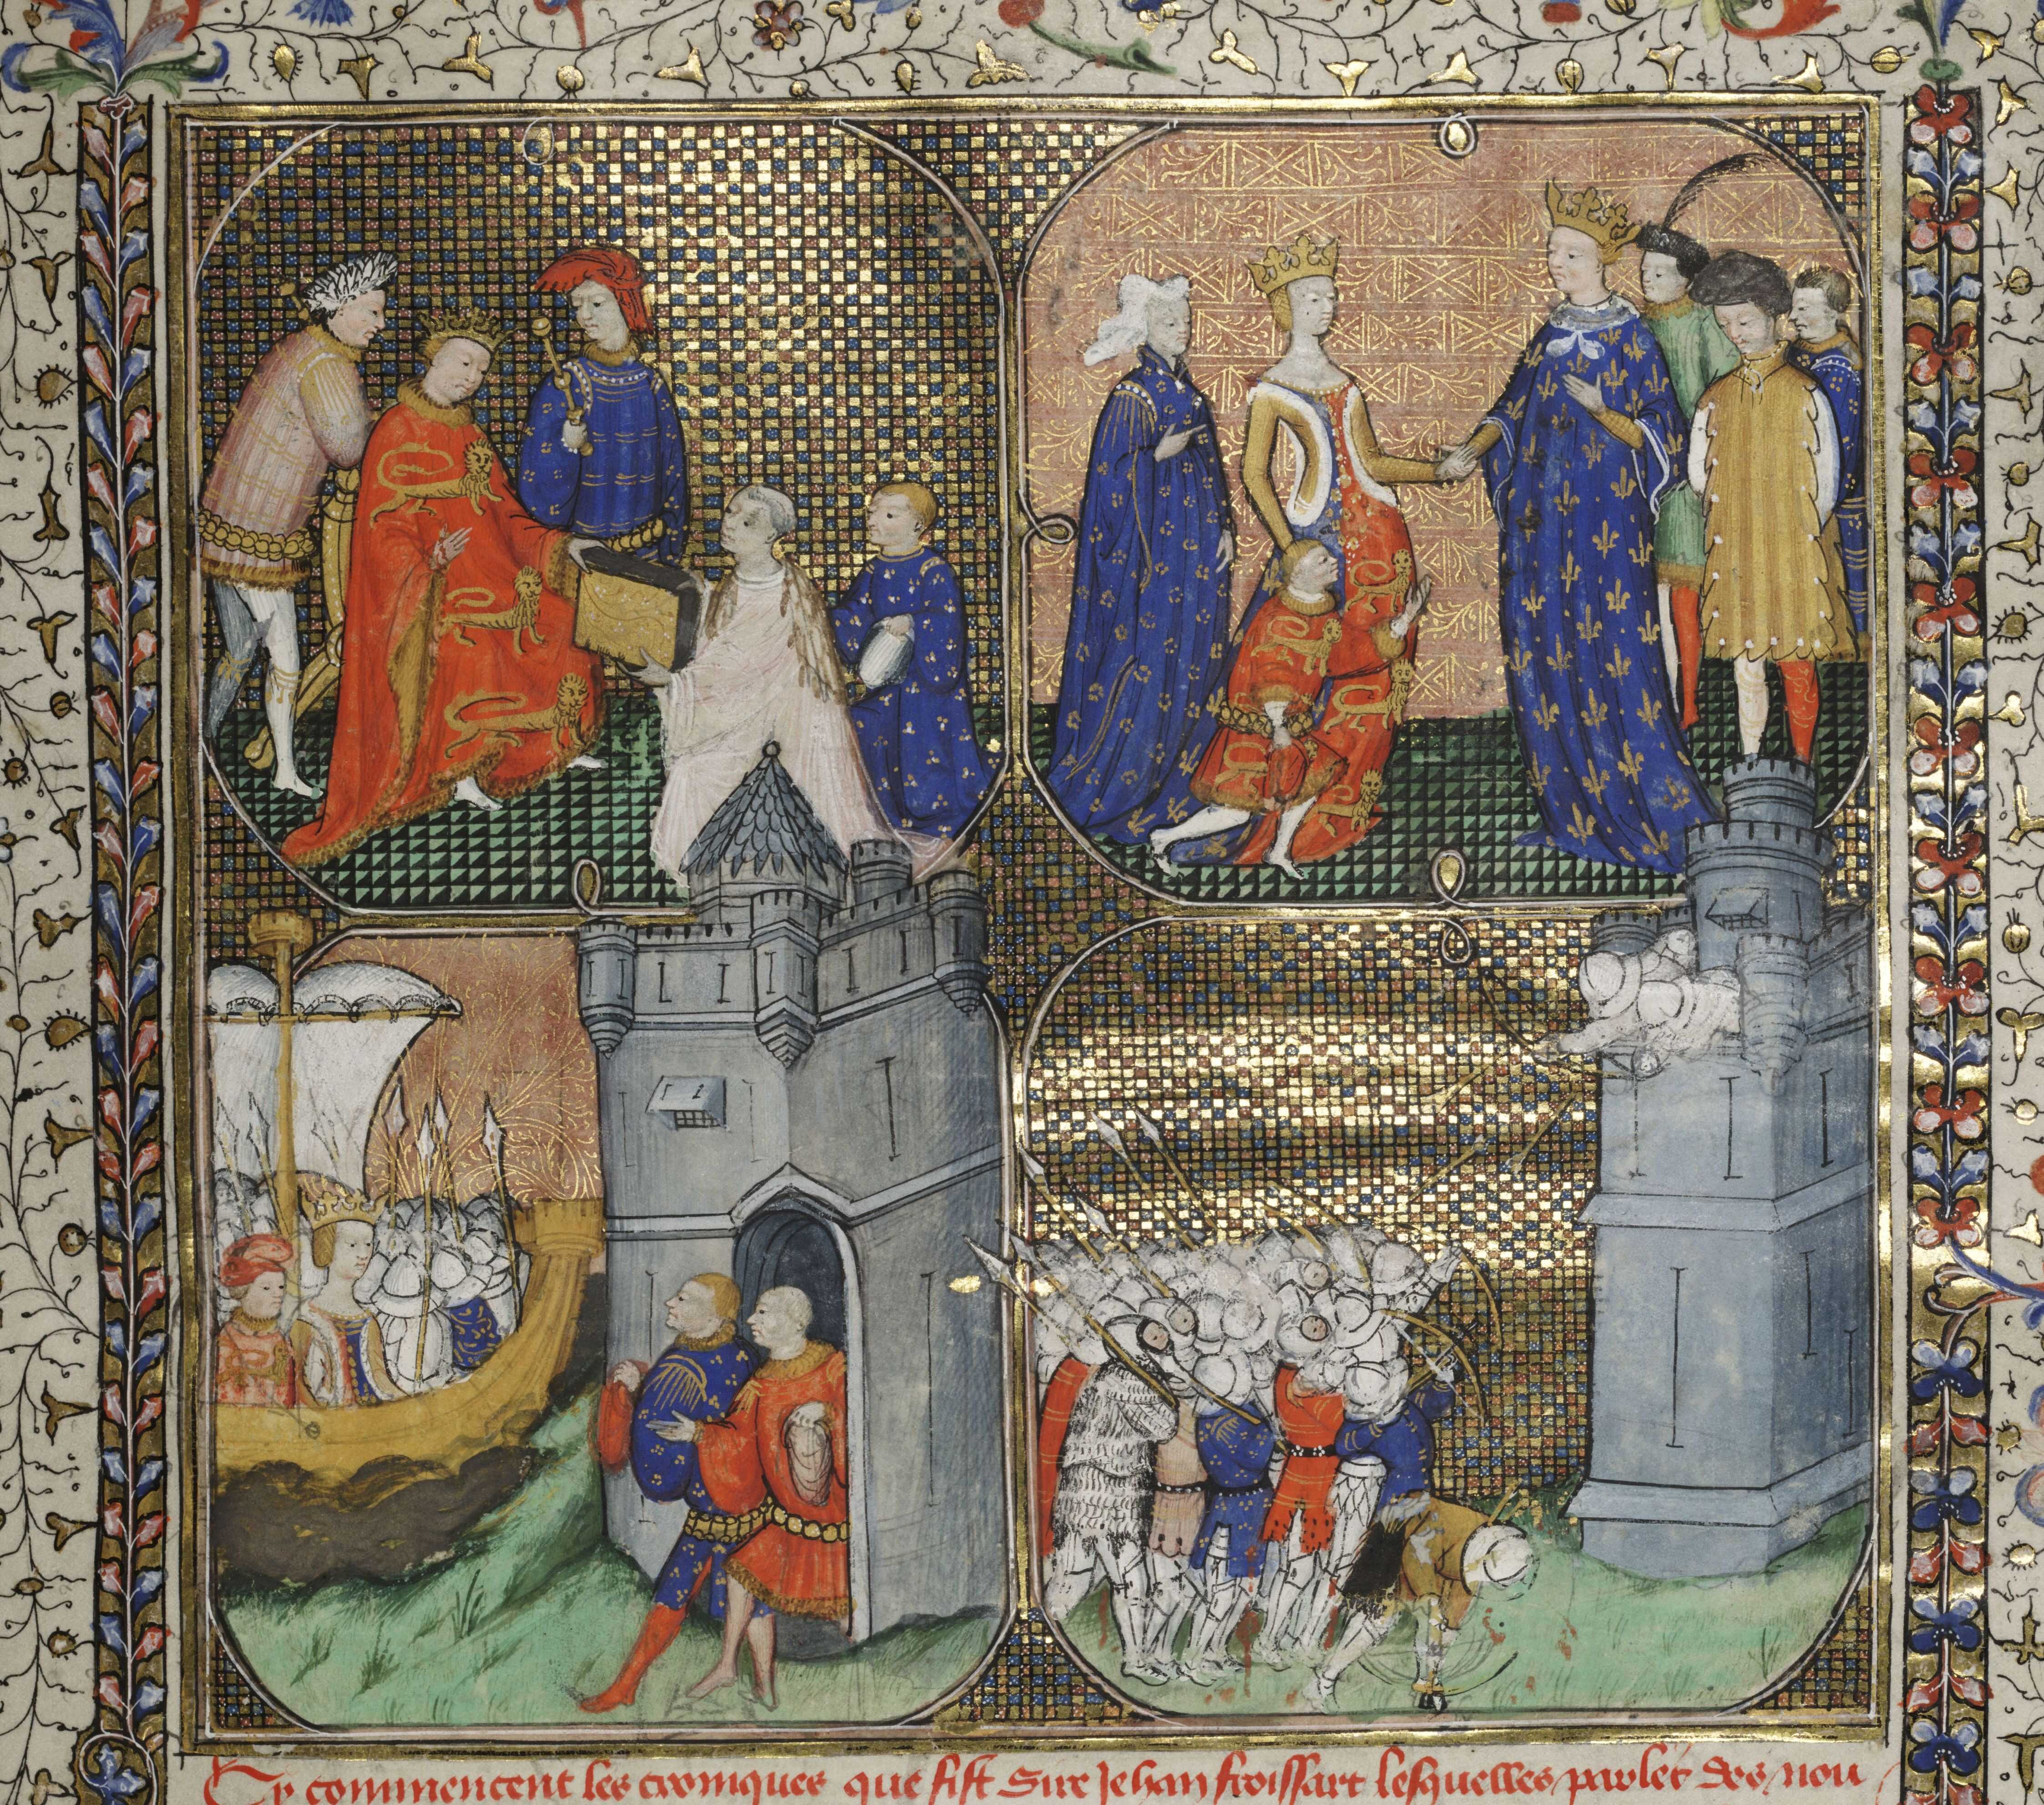 Cy commencent les croniques que fist Sire Jehan froissart lesquelles parlẽt des nou